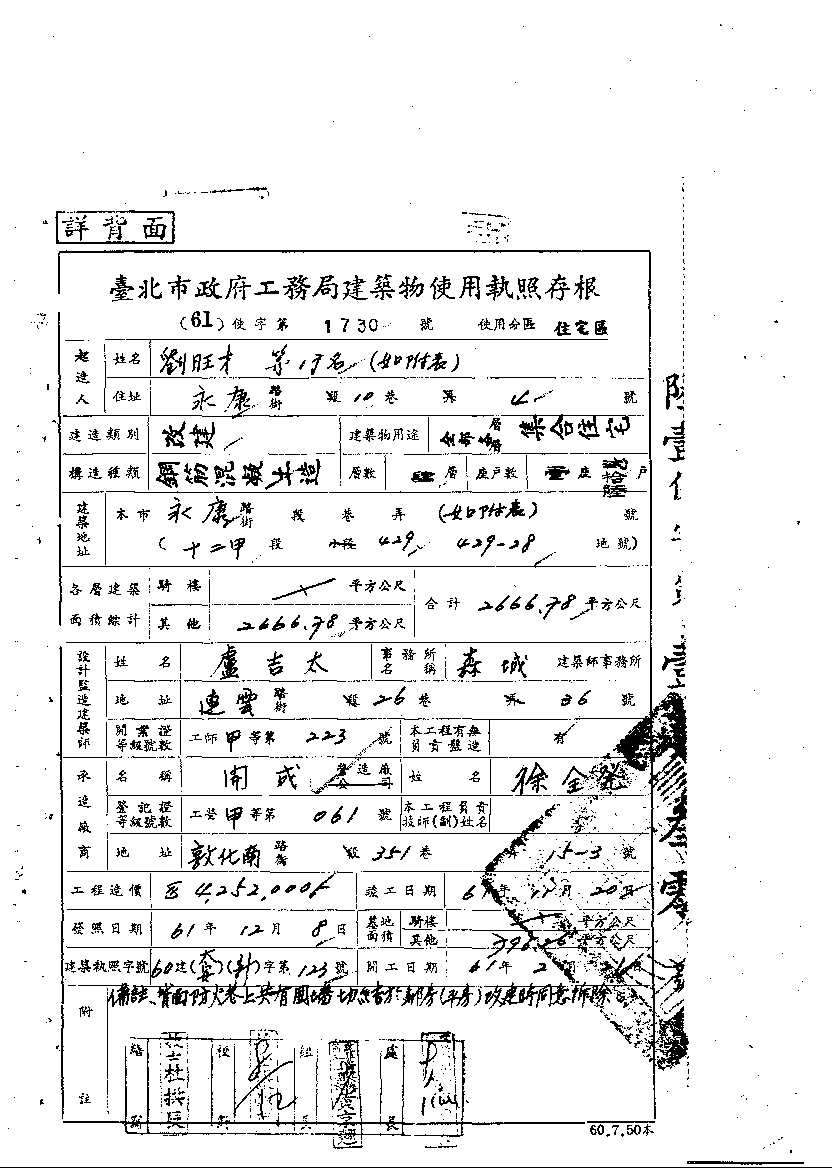 詳背面
臺北市政府工務局建築物使用執照存根
(61)使字第 1730 號 使用分區 住宅區
起造人 姓名 劉旺才 等19名(如附表)
住址 永康路街 段10巷 弄 4 號
建造類別 改建 建築物用途 全部各層層 集合住宅
構造種類 鋼筋混凝土造 層數 層 座戶數 座 戶
建築地址 本市 永康路街 段 巷 弄 (如附表) 號
(十二甲 段 小段 429, 429-28 地號)
各層建築面積綜計 騎樓 平方公尺 合計 2666.78 平方公尺
其他 2666.78 平方公尺
設計監造建築師 姓名 盧吉太 事務所名稱 森城 建築師事務所
地址 連雲路街 段 26巷 弄 36 號
開業證等級號數 工師甲等第 223 號 本工程有無負責監造 有
承造廠商 名稱 開成 營造廠公司 姓名 徐全
登記證等級號數 工營甲等第 061 號 本工程負責技師(副)姓名
地址 敦化南路街 段351巷 弄 15-3 號
工程造價 4,252,000 竣工日期 61年 11月 20日
發照日期 61年 12月 8日 基地面積 騎樓 平方公尺
其他 平方公尺
建築執照字號 60建()()字第 123號 開工日期 61年 2月 日
附註 備註、背面防火巷上共有圍牆切結書於鄰房(平房)改建時同意拆除
處長
60.7.50本